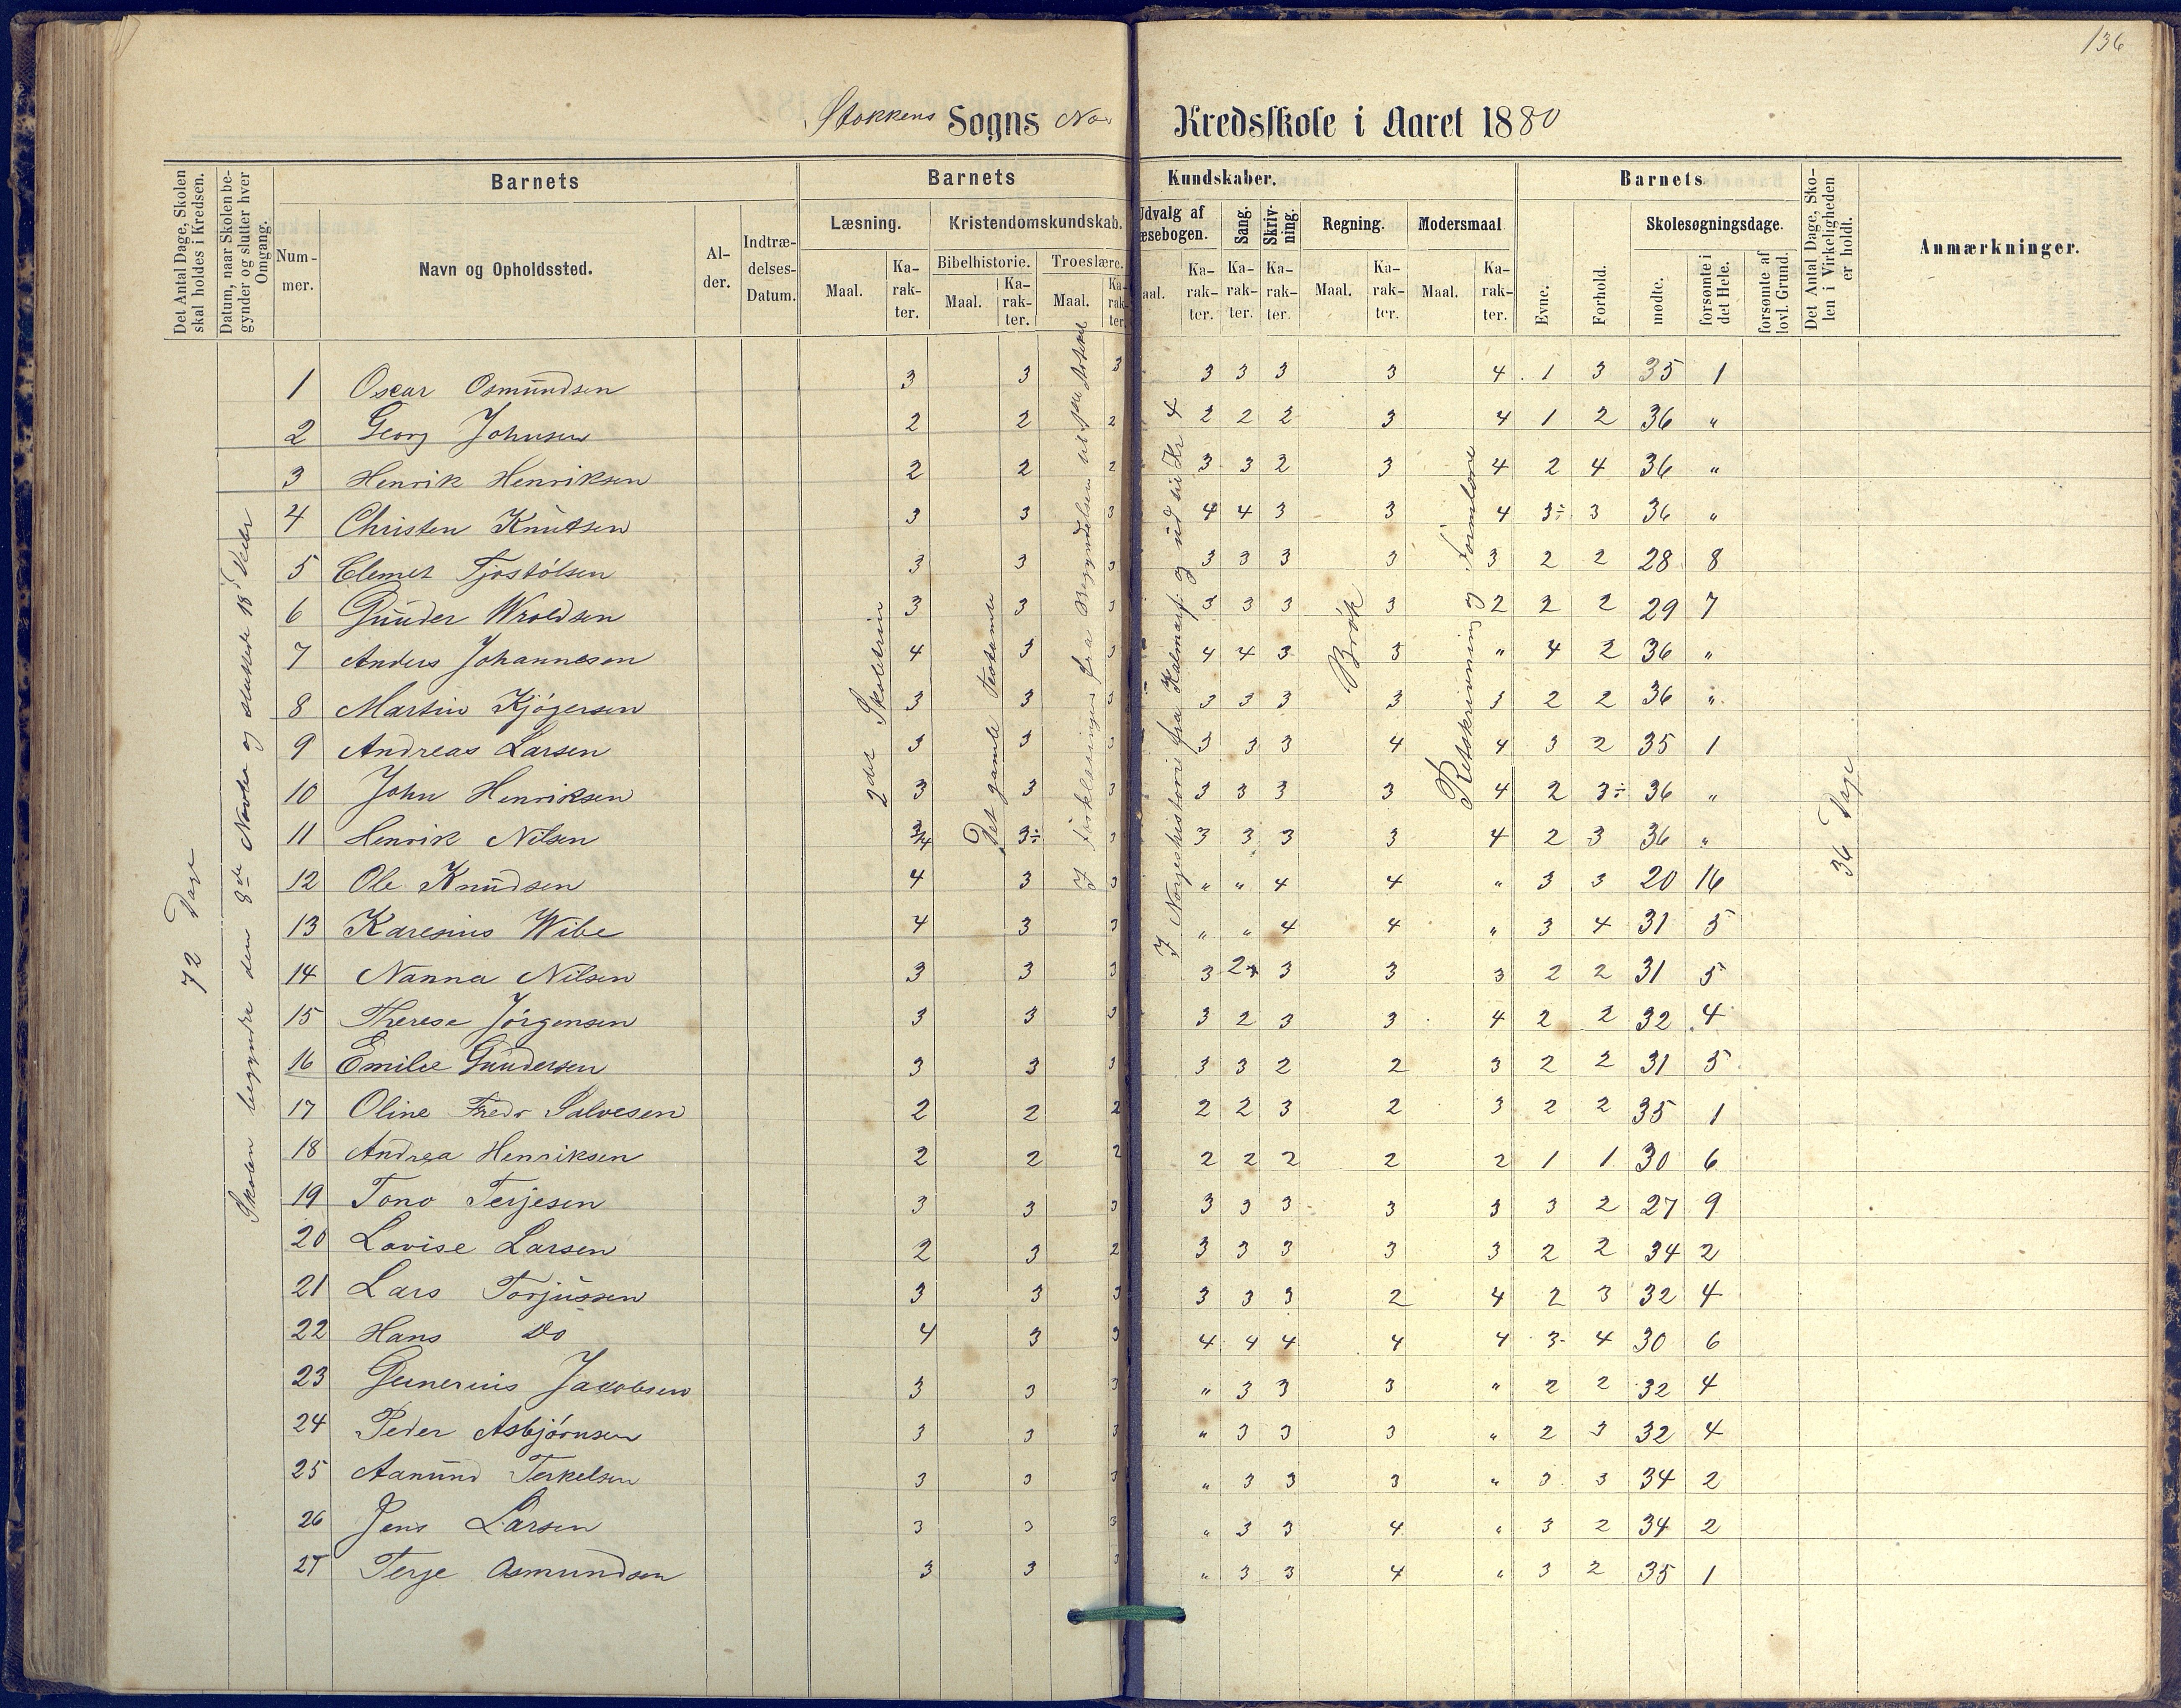 136
Stokkens Sogns No. Kredsskole i Aaret 1880
Det Antal Dage, Skolen skal holdes i Kredsen.
Datum, naar Skolen begynder og slutter hver Omgang.
Barnets
Nummer.
Navn og Opholdssted.
Alder.
Indtrædelses-Datum.
Barnets Kundskaber.
Læsning.
Maal.
Karakter.
Kristendomskundskab.
Bibelhistorie.
Maal.
Karakter.
Troeslære.
Maal.
Karakter.
Udvalg af
æsebogen.
aal.
Karakter.
Sang.
Karakter.
Skrivning.
Karakter.
Regning.
Maal.
Karakter.
Modersmaal
Maal.
Karakter.
Barnets
Evne.
Forhold.
Skolesøgningsdage.
mødte.
forsømte i det Hele.
forsømte af lovl. Grund.
Det Antal Dage, Skolen i Virkeligheden er holdt.
Anmærkninger.
72 Dage
Skolen begyndte den 8de Novbr og sluttede 18 Decbr
2det Skoletrin
Det gamle Testamente
I Forklaringen fra Begyndelsen til
I Norgeshistorie fra Kalmarf. og ud til Kr 4
Brøk
Retskrivning og Formlære
36 Dage
1 Oscar Osmundsen 3 3 3 3 3 3 3 4 1 3 35 1
2 Georg Johnsen 2 2 2 2 2 2 3 4 1 2 36 "
3 Henrik Henriksen 2 2 2 3 3 2 3 4 2 4 36 "
4 Christen Knutsen 3 3 3 4 4 3 3 4 3÷ 3 36 "
5 Clemet Tjostølsen 3 3 3 3 3 3 3 3 2 2 28 8
6 Gunder Wroldsen 3 3 3 3 3 3 3 2 2 2 29 7
7 Anders Johannesen 4 3 3 4 4 3 3 " 4 2 36 "
8 Martin Kjøgersen 3 3 3 3 3 3 3 3 2 2 36 "
9 Andreas Larsen 3 3 3 3 3 3 4 4 3 2 35 1
10 John Henriksen 3 3 3 3 3 3 3 4 2 3÷ 36 "
11 Henrik Nilsen 3/4 3÷ 3 3 3 3 3 4 2 3 36 "
12 Ole Knudsen 4 3 3 " " 4 4 " 3 3 20 16
13 Karenius Wibe 4 3 3 " " 4 4 " 3 4 31 5
14 Nanna Nilsen 3 3 3 3 2 3 3 3 2 2 31 5
15 Therese Jörgensen 3 3 3 3 2 3 3 4 2 2 32 4
16 Emilie Gundersen 3 3 3 3 3 2 2 3 2 2 31 5
17 Oline Fredr Salvesen 2 2 2 2 2 3 2 3 2 2 35 1
18 Andrea Henriksen 2 2 2 2 2 2 2 2 1 1 30 6
19 Tono Terjesen 3 3 3 3 3 3 3 3 3 2 27 9
20 Lovise Larsen 2 3 2 3 3 3 3 3 2 2 34 2
21 Lars Torjussen 3 3 3 3 3 3 2 4 2 3 32 4
22 Hans Do 4 3 3 4 4 4 4 4 3 4 30 6
23 Gunerius Jacobsen 3 3 3 " 3 3 3 " 2 2 32 4
24 Peder Asbjørnsen 3 3 3 " 3 3 3 " 2 3 32 4
25 Aanund Terkelsen 3 3 3 " 3 3 3 " 3 3 34 2
26 Jens Larsen 3 3 3 " 3 3 4 " 3 2 34 2
27 Terje Osmundsen 3 3 3 " 3 3 4 " 3 2 35 1